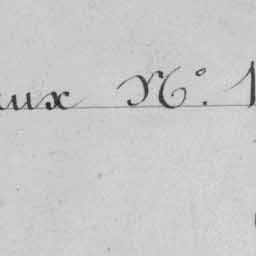 aux N°. 1